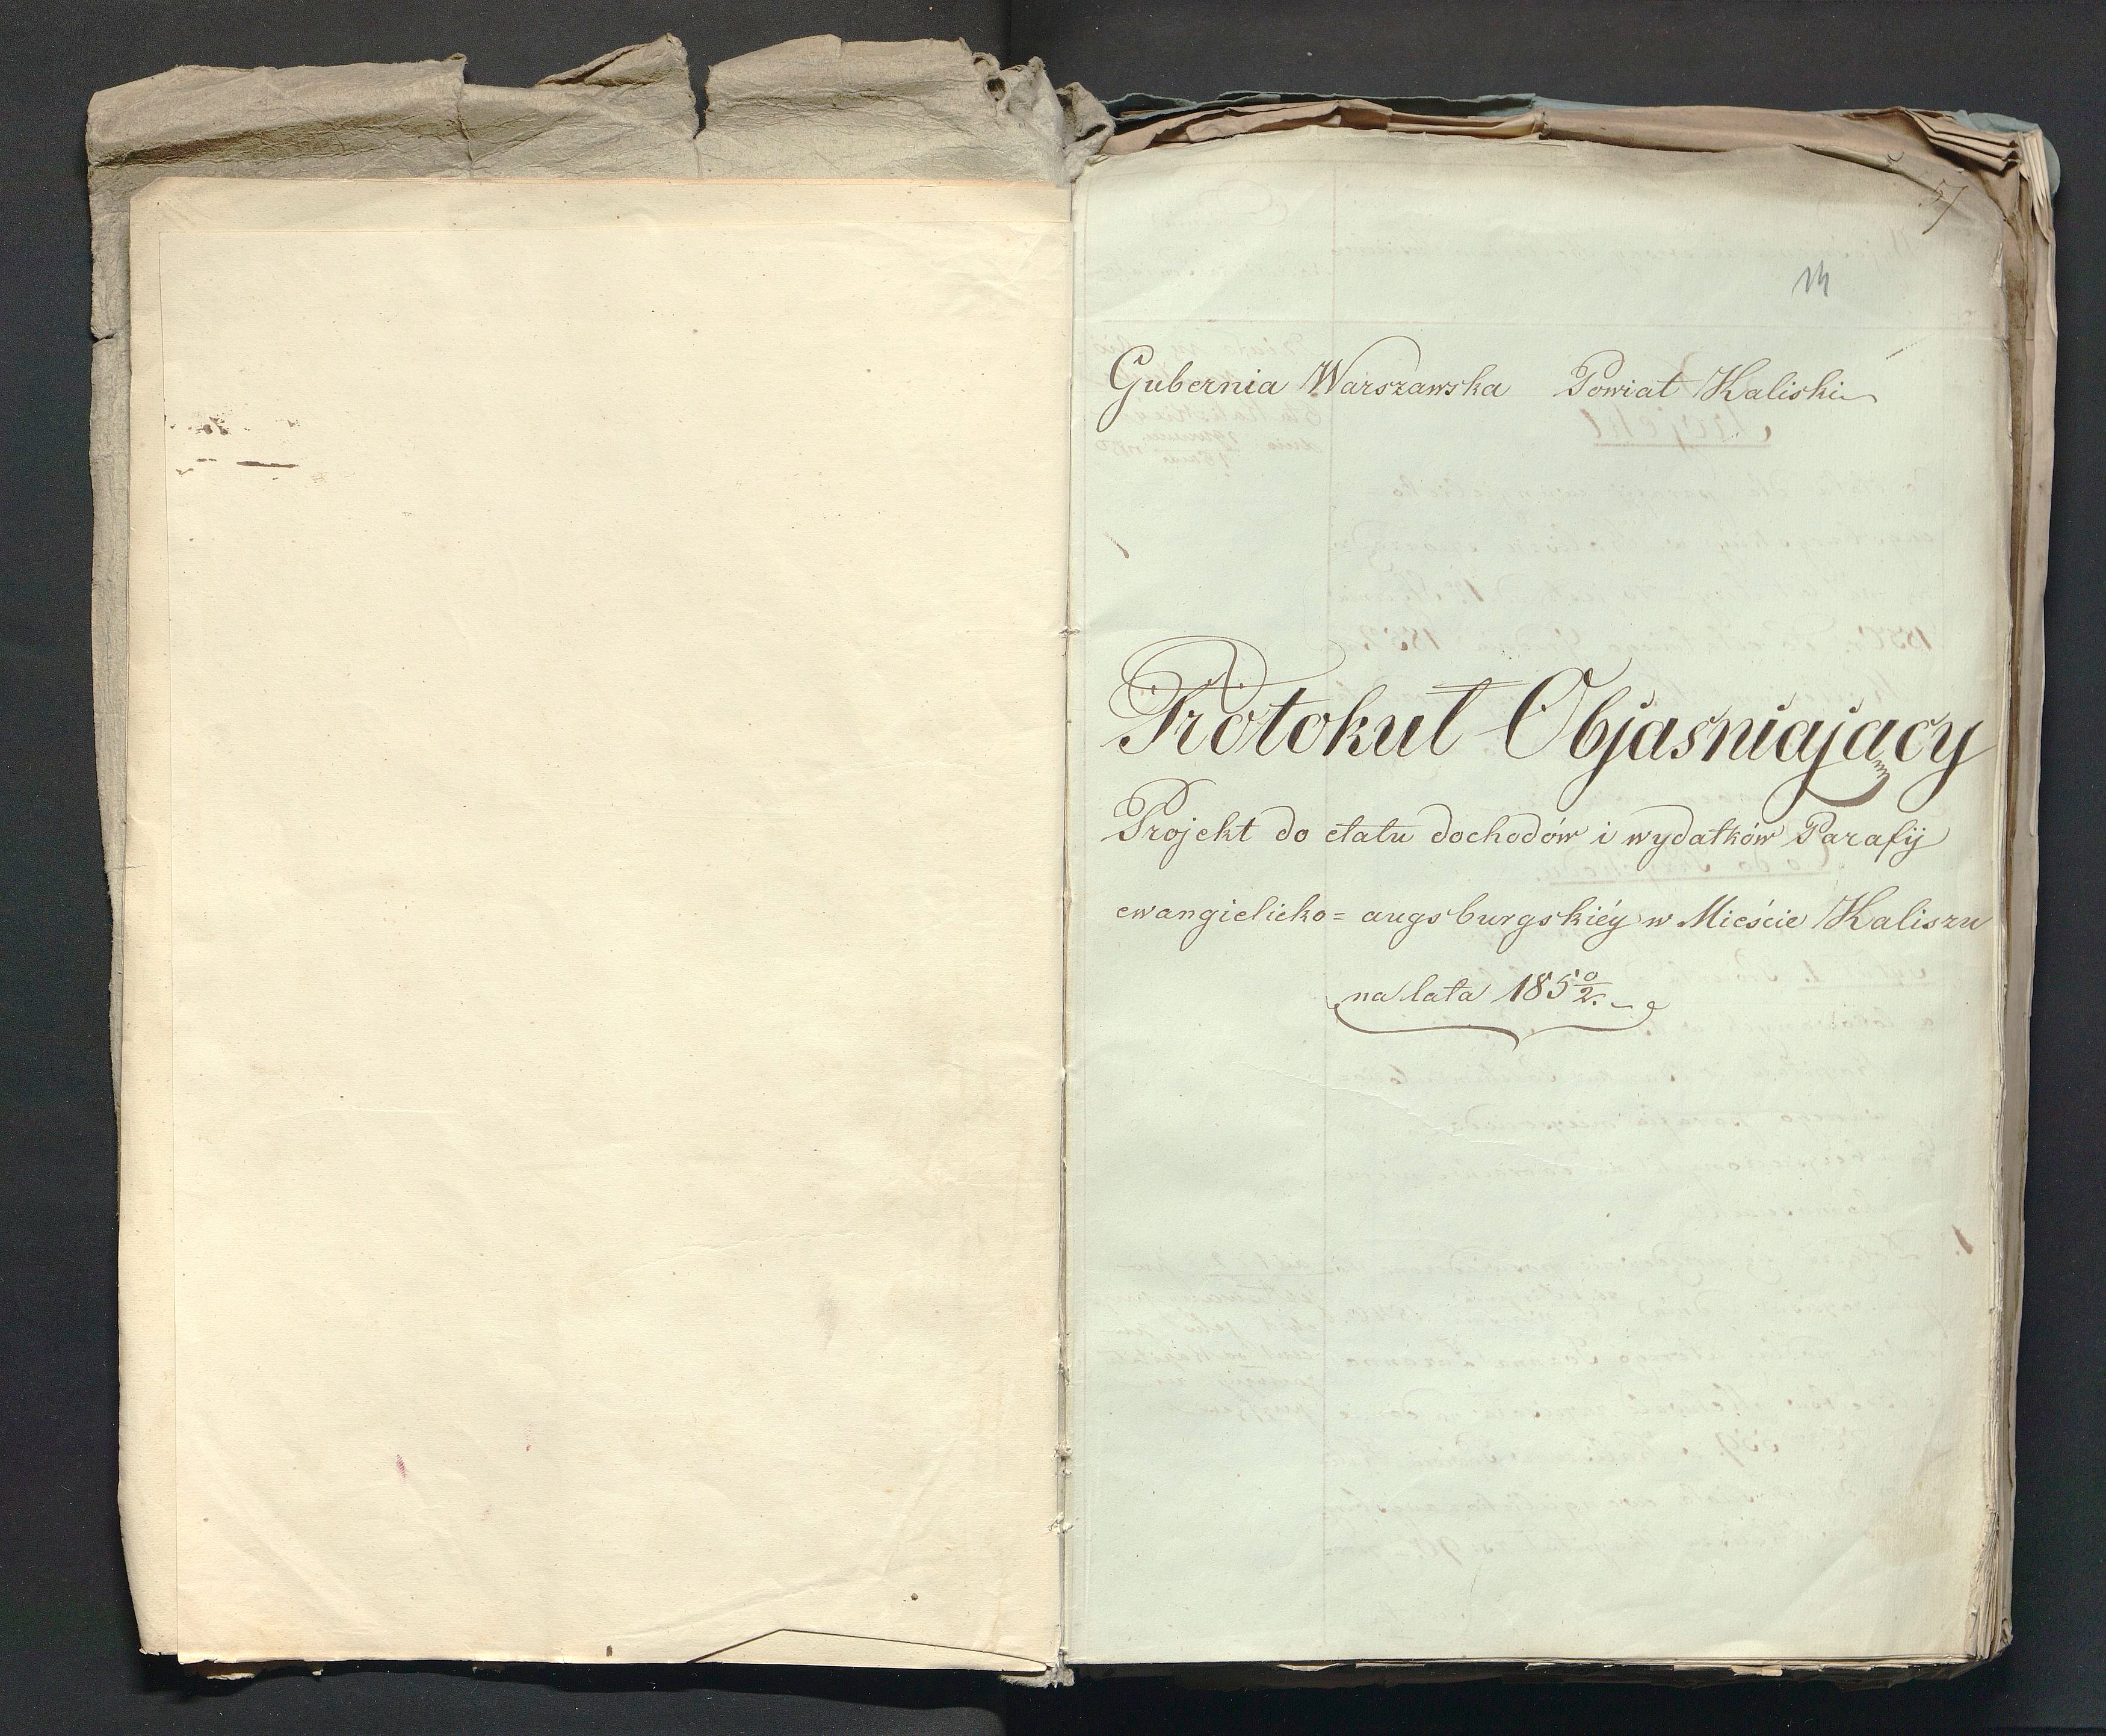 57
14
Gubernia Warszawska Powiat Kaliski
Protokuł Objaśniający
Projekt do etatu dochodów i wydatków Parafij
ewangielicko = augsburgskiéy w Mieście Kaliszu
na lata 185 0/2.